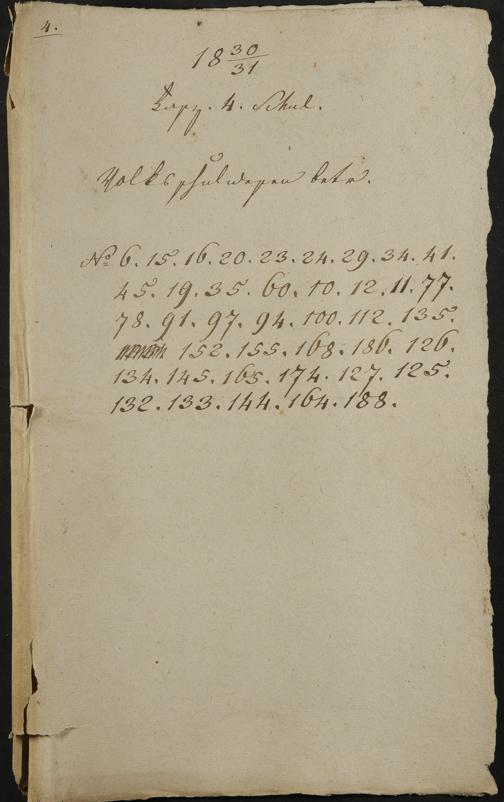 4.
18 30/31
4. Schul.
Volksschulwesen betr.
No 6. 15. 16. 20. 23. 24. 29. 34. 41.
45. 19. 35. 60. 10. 12. 11. 77.
78. 91. 97. 94. 100. 112. 135.
152. 155. 168. 186. 126.
134. 145. 165. 174. 127. 125.
132. 133. 144. 164. 188.